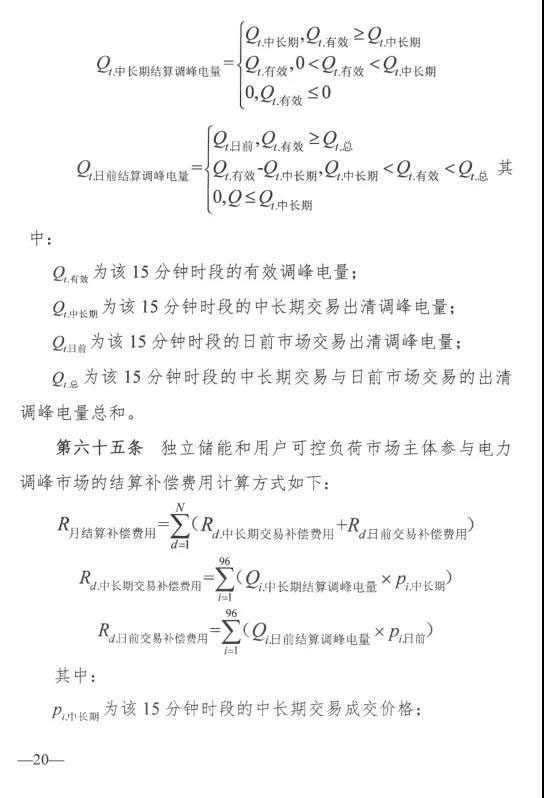 Q_{t.中长期结算调峰电量}={Q_{t.中长期},Q_{t.有效}≥Q_{t.中长期}
Q_{t.有效},0<Q_{t.有效}<Q_{t.中长期}
0,Q_{t.有效}≤0
Q_{t.日前结算调峰电量}={Q_{t.日前},Q_{t.有效}≥Q_{t.总}
Q_{t.有效}-Q_{t.中长期},Q_{t.中长期}<Q_{t.有效}<Q_{t.总} 其
0,Q≤Q_{t.中长期}
中：
Q_{t.有效}为该 15 分钟时段的有效调峰电量；
Q_{t.中长期}为该 15 分钟时段的中长期交易出清调峰电量；
Q_{t.日前}为该 15 分钟时段的日前市场交易出清调峰电量；
Q_{t.总}为该 15 分钟时段的中长期交易与日前市场交易的出清
调峰电量总和。
第六十五条 独立储能和用户可控负荷市场主体参与电力
调峰市场的结算补偿费用计算方式如下：
R_{月结算补偿费用}=∑_{d=1}^{N}(R_{d.中长期交易补偿费用}+R_{d.日前交易补偿费用})
R_{d.中长期交易补偿费用}=∑_{i=1}^{96}(Q_{i.中长期结算调峰电量}×p_{i.中长期})
R_{d.日前交易补偿费用}=∑_{i=1}^{96}(Q_{i.日前结算调峰电量}×p_{i.日前})
其中：
p_{i.中长期}为该 15 分钟时段的中长期交易成交价格；
—20—